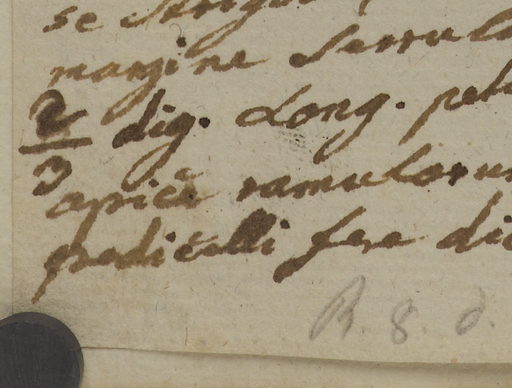 se
margine serrula
2/3 dig. Long. pet
apicē ramulorum
pedicelli fere di
R 8. d.